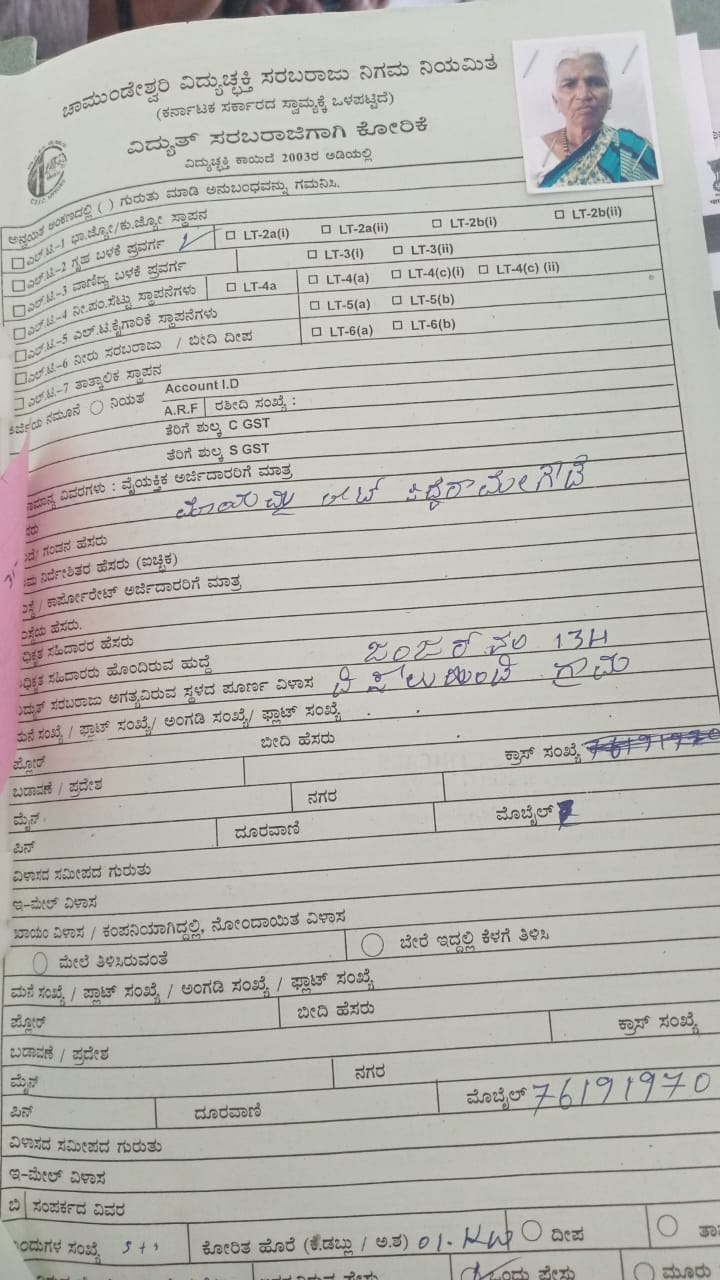 ಚಾಮುಂಡೇಶ್ವರಿ ವಿದ್ಯುಚ್ಛಕ್ತಿ ಸರಬರಾಜು ನಿಗಮ ನಿಯಮಿತ
(ಕರ್ನಾಟಕ ಸರ್ಕಾರದ ಸ್ವಾಮ್ಯಕ್ಕೆ ಒಳಪಟ್ಟಿದೆ)
ವಿದ್ಯುತ್ ಸರಬರಾಜಿಗಾಗಿ ಕೋರಿಕೆ
ವಿದ್ಯುಚ್ಛಕ್ತಿ ಕಾಯಿದೆ 2003ರ ಅಡಿಯಲ್ಲಿ
ಅನ್ವಯಿತ ಅಂಕಣದಲ್ಲಿ ( ) ಗುರುತು ಮಾಡಿ ಅನುಬಂಧವನ್ನು ಗಮನಿಸಿ.
☐ ಎಲ್.ಟಿ-1 ಭಾ.ಜ್ಯೋ/ಕು.ಜ್ಯೋ ಸ್ಥಾಪನ
☐ ಎಲ್.ಟಿ-2 ಗೃಹ ಬಳಕೆ ಪ್ರವರ್ಗ ☐ LT-2a(i) ☐ LT-2a(ii) ☐ LT-2b(i) ☐ LT-2b(ii)
☐ ಎಲ್.ಟಿ-3 ವಾಣಿಜ್ಯ ಬಳಕೆ ಪ್ರವರ್ಗ ☐ LT-3(i) ☐ LT-3(ii)
☐ ಎಲ್.ಟಿ-4 ನೀ.ಪಂ.ಸೆಟ್ಟು ಸ್ಥಾಪನೆಗಳು ☐ LT-4a ☐ LT-4(a) ☐ LT-4(c)(i) ☐ LT-4(c) (ii)
☐ ಎಲ್.ಟಿ-5 ಎಲ್.ಟಿ.ಕೈಗಾರಿಕೆ ಸ್ಥಾಪನೆಗಳು ☐ LT-5(a) ☐ LT-5(b)
☐ ಎಲ್.ಟಿ-6 ನೀರು ಸರಬರಾಜು / ಬೀದಿ ದೀಪ ☐ LT-6(a) ☐ LT-6(b)
☐ ಎಲ್.ಟಿ-7 ತಾತ್ಕಾಲಿಕ ಸ್ಥಾಪನ
ನಮೂನೆ ◯ ನಿಯತ Account I.D
A.R.F ರಶೀದಿ ಸಂಖ್ಯೆ :
ತೆರಿಗೆ ಶುಲ್ಕ C GST
ತೆರಿಗೆ ಶುಲ್ಕ S GST
ವಿವರಗಳು : ವೈಯಕ್ತಿಕ ಅರ್ಜಿದಾರರಿಗೆ ಮಾತ್ರ
ಗಂಡನ ಹೆಸರು
ನಿರ್ದೇಶಿತರ ಹೆಸರು (ಐಚ್ಛಿಕ)
/ ಕಾರ್ಪೋರೇಟ್ ಅರ್ಜಿದಾರರಿಗೆ ಮಾತ್ರ
ಹೆಸರು.
ಸಹಿದಾರರ ಹೆಸರು
ಸಹಿದಾರರು ಹೊಂದಿರುವ ಹುದ್ದೆ 134
ಸರಬರಾಜು ಅಗತ್ಯವಿರುವ ಸ್ಥಳದ ಪೂರ್ಣ ವಿಳಾಸ
ಮನೆ ಸಂಖ್ಯೆ / ಫ್ಲಾಟ್ ಸಂಖ್ಯೆ/ ಅಂಗಡಿ ಸಂಖ್ಯೆ/ ಫ್ಲಾಟ್ ಸಂಖ್ಯೆ
ಫ್ಲೋರ್ ಬೀದಿ ಹೆಸರು
ಬಡಾವಣೆ / ಪ್ರದೇಶ ಕ್ರಾಸ್ ಸಂಖ್ಯೆ
ಮೈನ್ ನಗರ
ಪಿನ್ ದೂರವಾಣಿ ಮೊಬೈಲ್
ವಿಳಾಸದ ಸಮೀಪದ ಗುರುತು
ಇ-ಮೇಲ್ ವಿಳಾಸ
ಖಾಯಂ ವಿಳಾಸ / ಕಂಪನಿಯಾಗಿದ್ದಲ್ಲಿ, ನೋಂದಾಯಿತ ವಿಳಾಸ
◯ ಮೇಲೆ ತಿಳಿಸಿರುವಂತೆ ◯ ಬೇರೆ ಇದ್ದಲ್ಲಿ ಕೆಳಗೆ ತಿಳಿಸಿ
ಮನೆ ಸಂಖ್ಯೆ / ಪ್ಲಾಟ್ ಸಂಖ್ಯೆ / ಅಂಗಡಿ ಸಂಖ್ಯೆ / ಫ್ಲಾಟ್ ಸಂಖ್ಯೆ
ಫ್ಲೋರ್ ಬೀದಿ ಹೆಸರು
ಬಡಾವಣೆ / ಪ್ರದೇಶ ಕ್ರಾಸ್ ಸಂಖ್ಯೆ
ಮೈನ್ ನಗರ
ಪಿನ್ ದೂರವಾಣಿ ಮೊಬೈಲ್ 76191970
ವಿಳಾಸದ ಸಮೀಪದ ಗುರುತು
ಇ-ಮೇಲ್ ವಿಳಾಸ
ಬಿ ಸಂಪರ್ಕದ ವಿವರ
ಸಂಖ್ಯೆ 5+1 ಕೋರಿತ ಹೊರೆ (ಕೆ.ಡಬ್ಲು / ಅ.ಶ) 01. KW ◯ ದೀಪ ◯